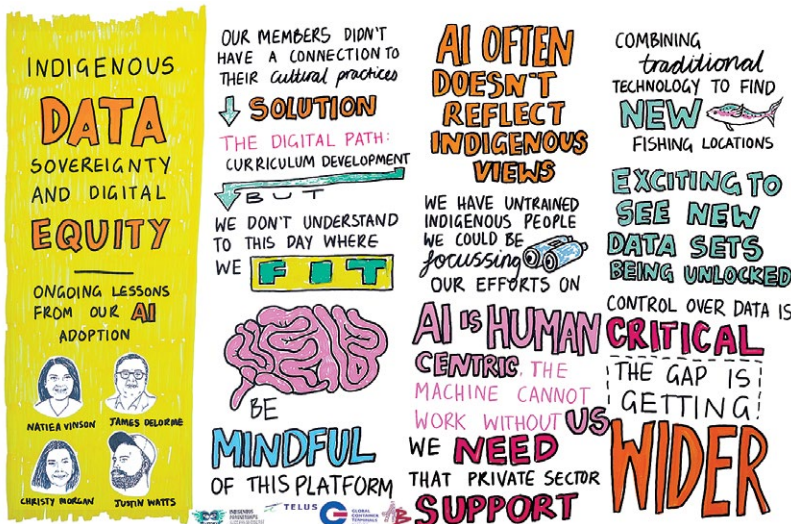 INDIGENOUS
DATA
SOVEREIGNTY
AND DIGITAL
EQUITY
ONGOING LESSONS
FROM OUR AI
ADOPTION
NATIEA VINSON
JAMES DELORME
CHRISTY MORGAN
JUSTIN WATTS
OUR MEMBERS DIDN'T
HAVE A CONNECTION TO
THEIR cultural practices
SOLUTION
THE DIGITAL PATH:
CURRICULUM DEVELOPMENT
BUT
WE DON'T UNDERSTAND
TO THIS DAY WHERE
WE FIT
BE
MINDFUL
OF THIS PLATFORM
AI OFTEN
DOESN'T
REFLECT
INDIGENOUS
VIEWS
WE HAVE UNTRAINED
INDIGENOUS PEOPLE
WE COULD BE
focussing
OUR EFFORTS ON
AI IS HUMAN
CENTRIC. THE
MACHINE CANNOT
WORK WITHOUT US
WE NEED
THAT PRIVATE SECTOR
SUPPORT
COMBINING
traditional
TECHNOLOGY TO FIND
NEW
FISHING LOCATIONS
EXCITING TO
SEE NEW
DATA SETS
BEING UNLOCKED
CONTROL OVER DATA IS
CRITICAL
THE GAP IS
GETTING
WIDER
TELUS
GLOBAL
CONTAINER
TERMINALS